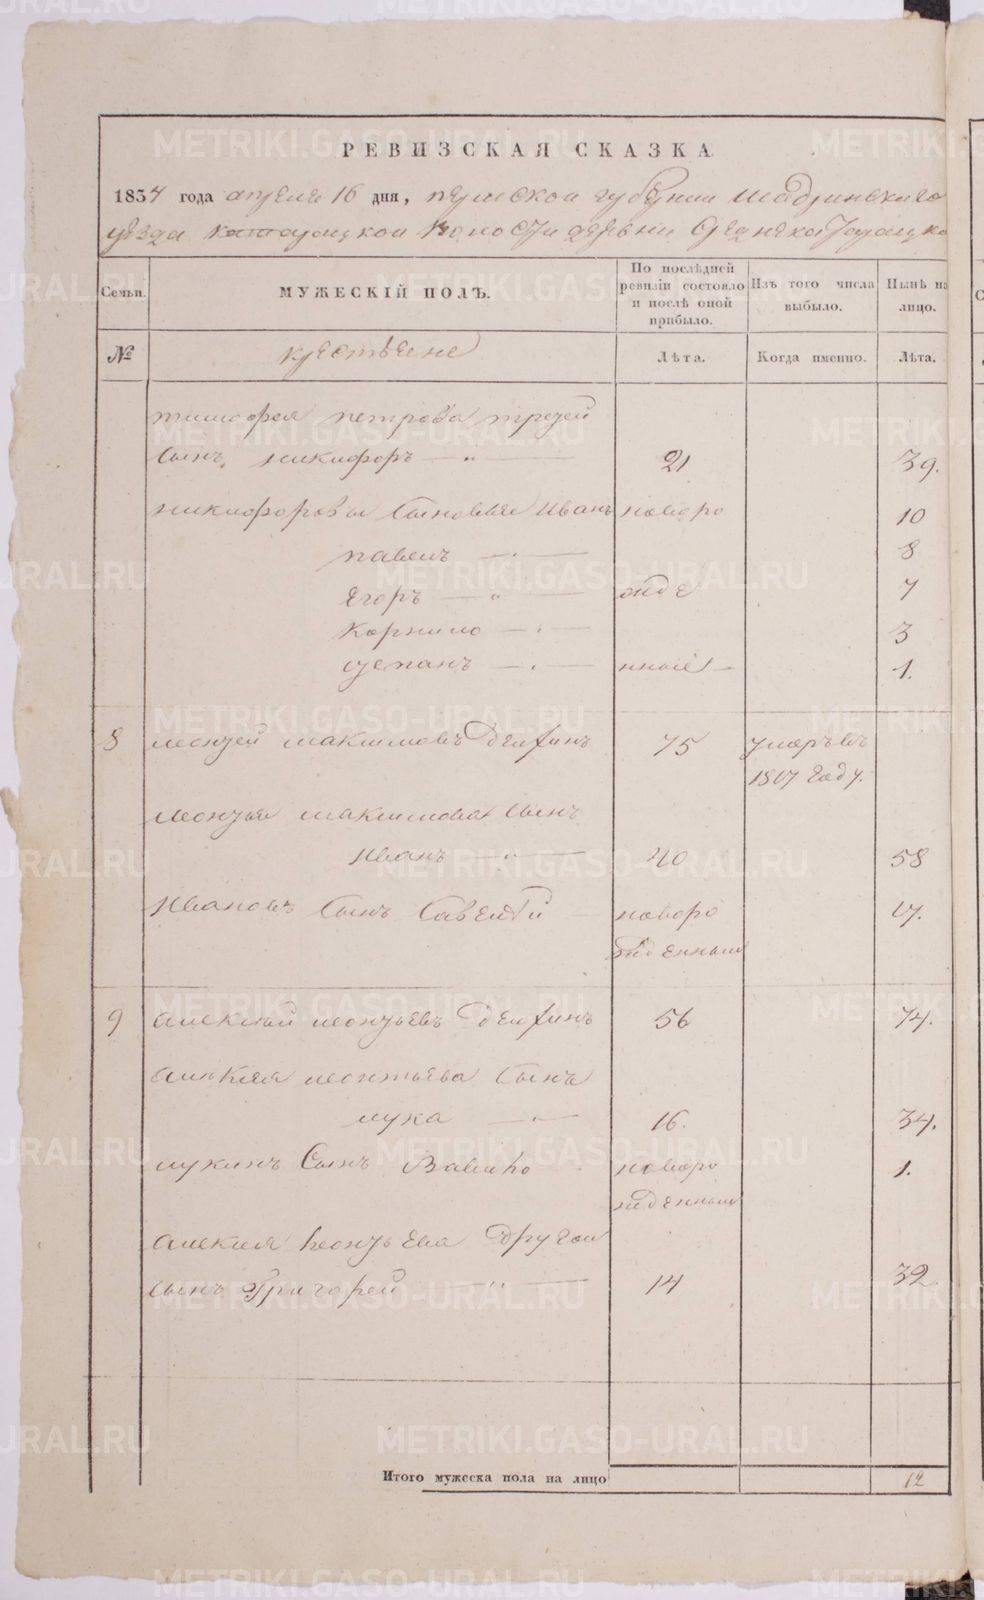 РЕВИЗСКАЯ СКАЗКА
1834 года апреля 16 дня, пермской губернии Шадринскаго
уезда катарацкой волости деревни
Семьи.
МУЖЕСКІЙ ПОЛЪ.
По послѣдней ревизіи состояло и послѣ оной прибыло.
Изъ того числа выбыло.
Нынѣ на лицо.
№
крестьяне
Лѣта.
Когда именно.
Лѣта.
тимофея петрова третей
сынъ никифоръ 21 39.
никифоровы сыновья Иванъ новоро 10
павелъ 8
Егоръ жде 7
Корнило 3
степанъ нные 1.
8 леонтей максимовъ 75 умеръ въ
1817 году.
леонтья максимова сынъ
Иванъ 40 58
Ивановъ сынъ Савентй новоро 17.
жденный
9 алексѣй леонтьевъ 56 74.
алексея леонтьева сынъ
лука 16. 34.
лукинъ сынъ Вавило новоро 1.
жденный
алексея леонтьева другой
сынъ Григорей 14 32
Итого мужеска пола на лицо 12
METRIKI.GASO-URAL.RU